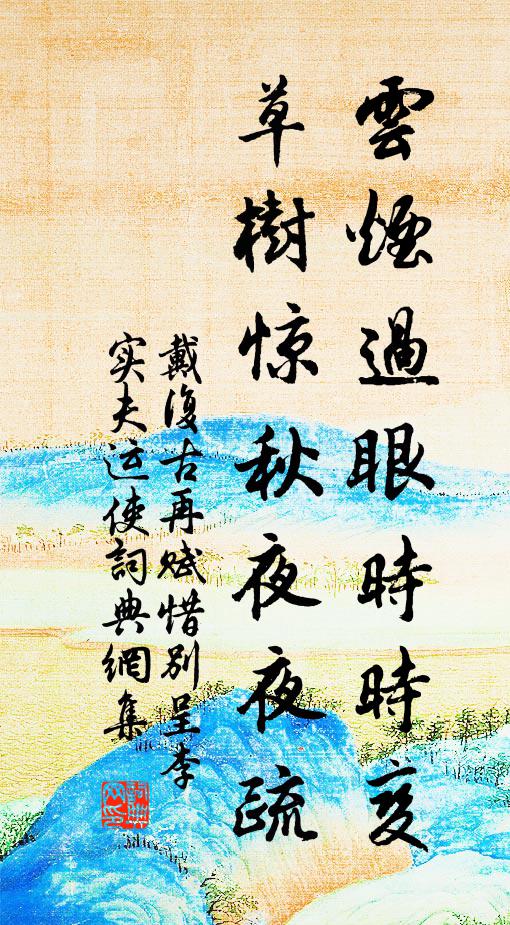 雲煙過眼時時变
草樹惊秋夜夜疏
戴復古再赋惜别呈李
实夫运使詞典網集